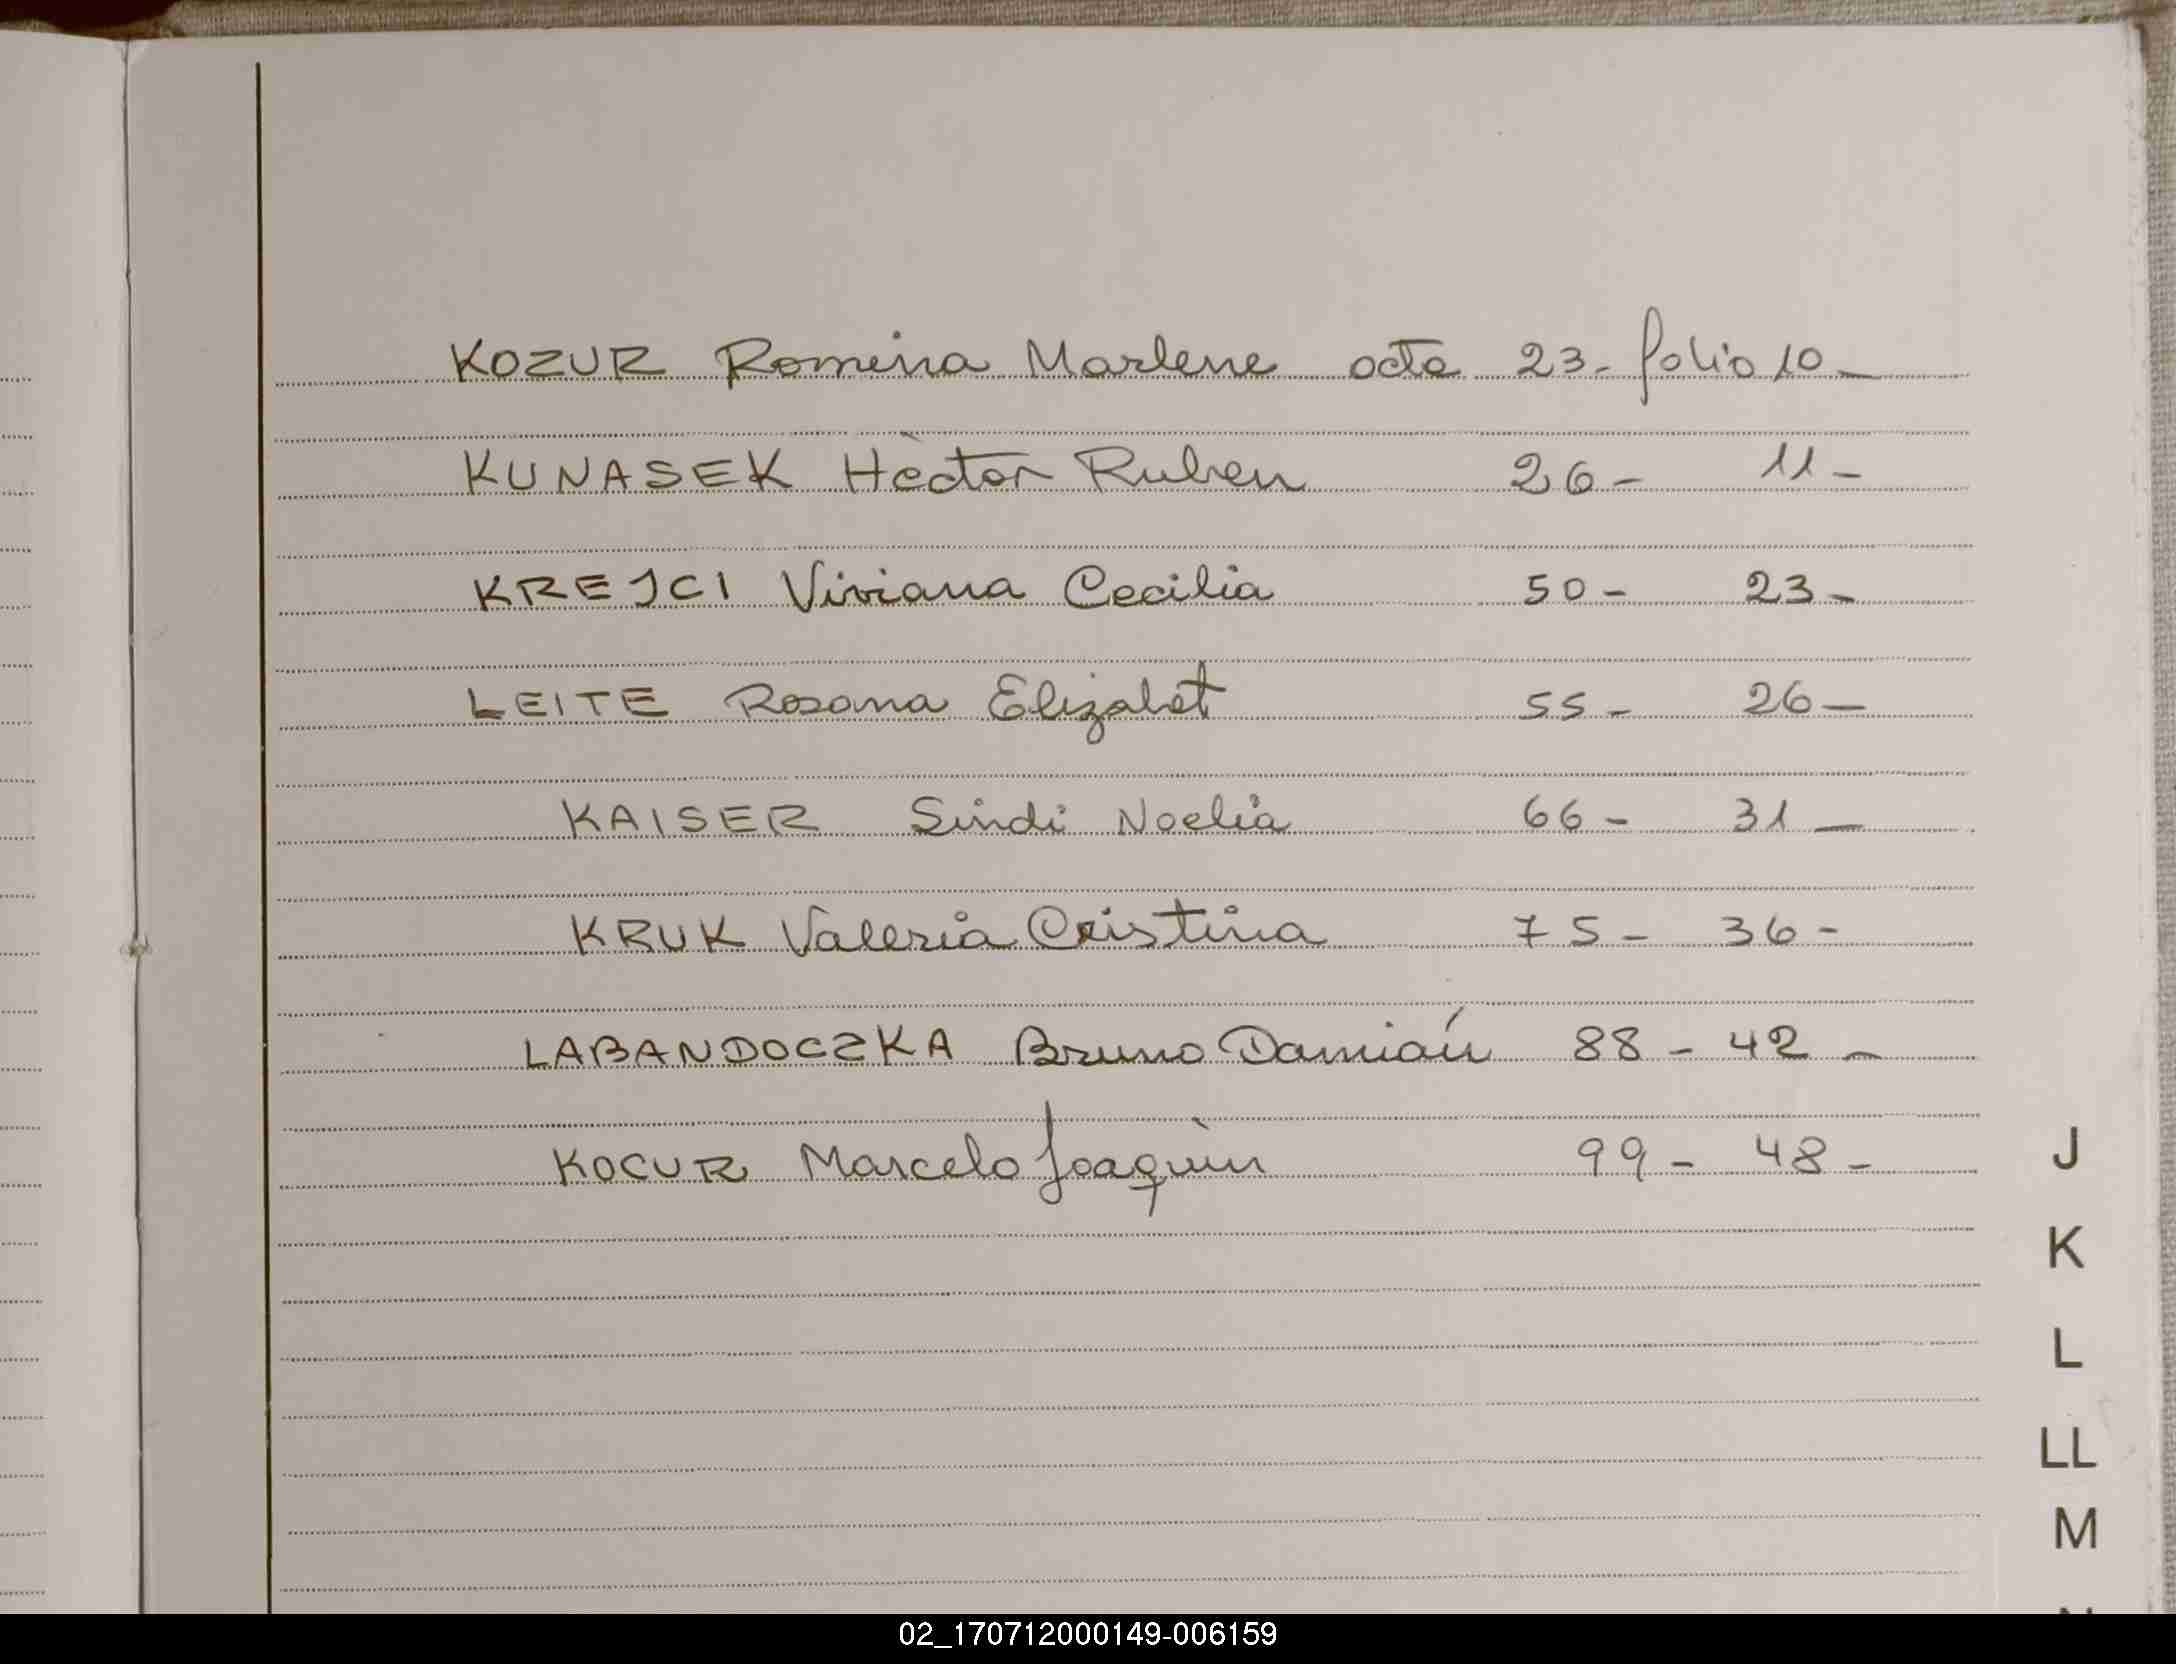 KOZUR Romina Marlene acta 23- folio 10-
KUNASEK Hèctor Ruben 26- 11-
KREJCI Viviana Cecilia 50- 23-
LEITE Rosana Elizabet 55- 26-
KAISER Sindi Noelia 66- 31-
KRUK Valeria Cristina 75- 36-
LABANDOCZKA Bruno Damián 88- 42-
KOCUR Marcelo Joaquìn 99- 48-
J
K
L
LL
M
02_170712000149-006159